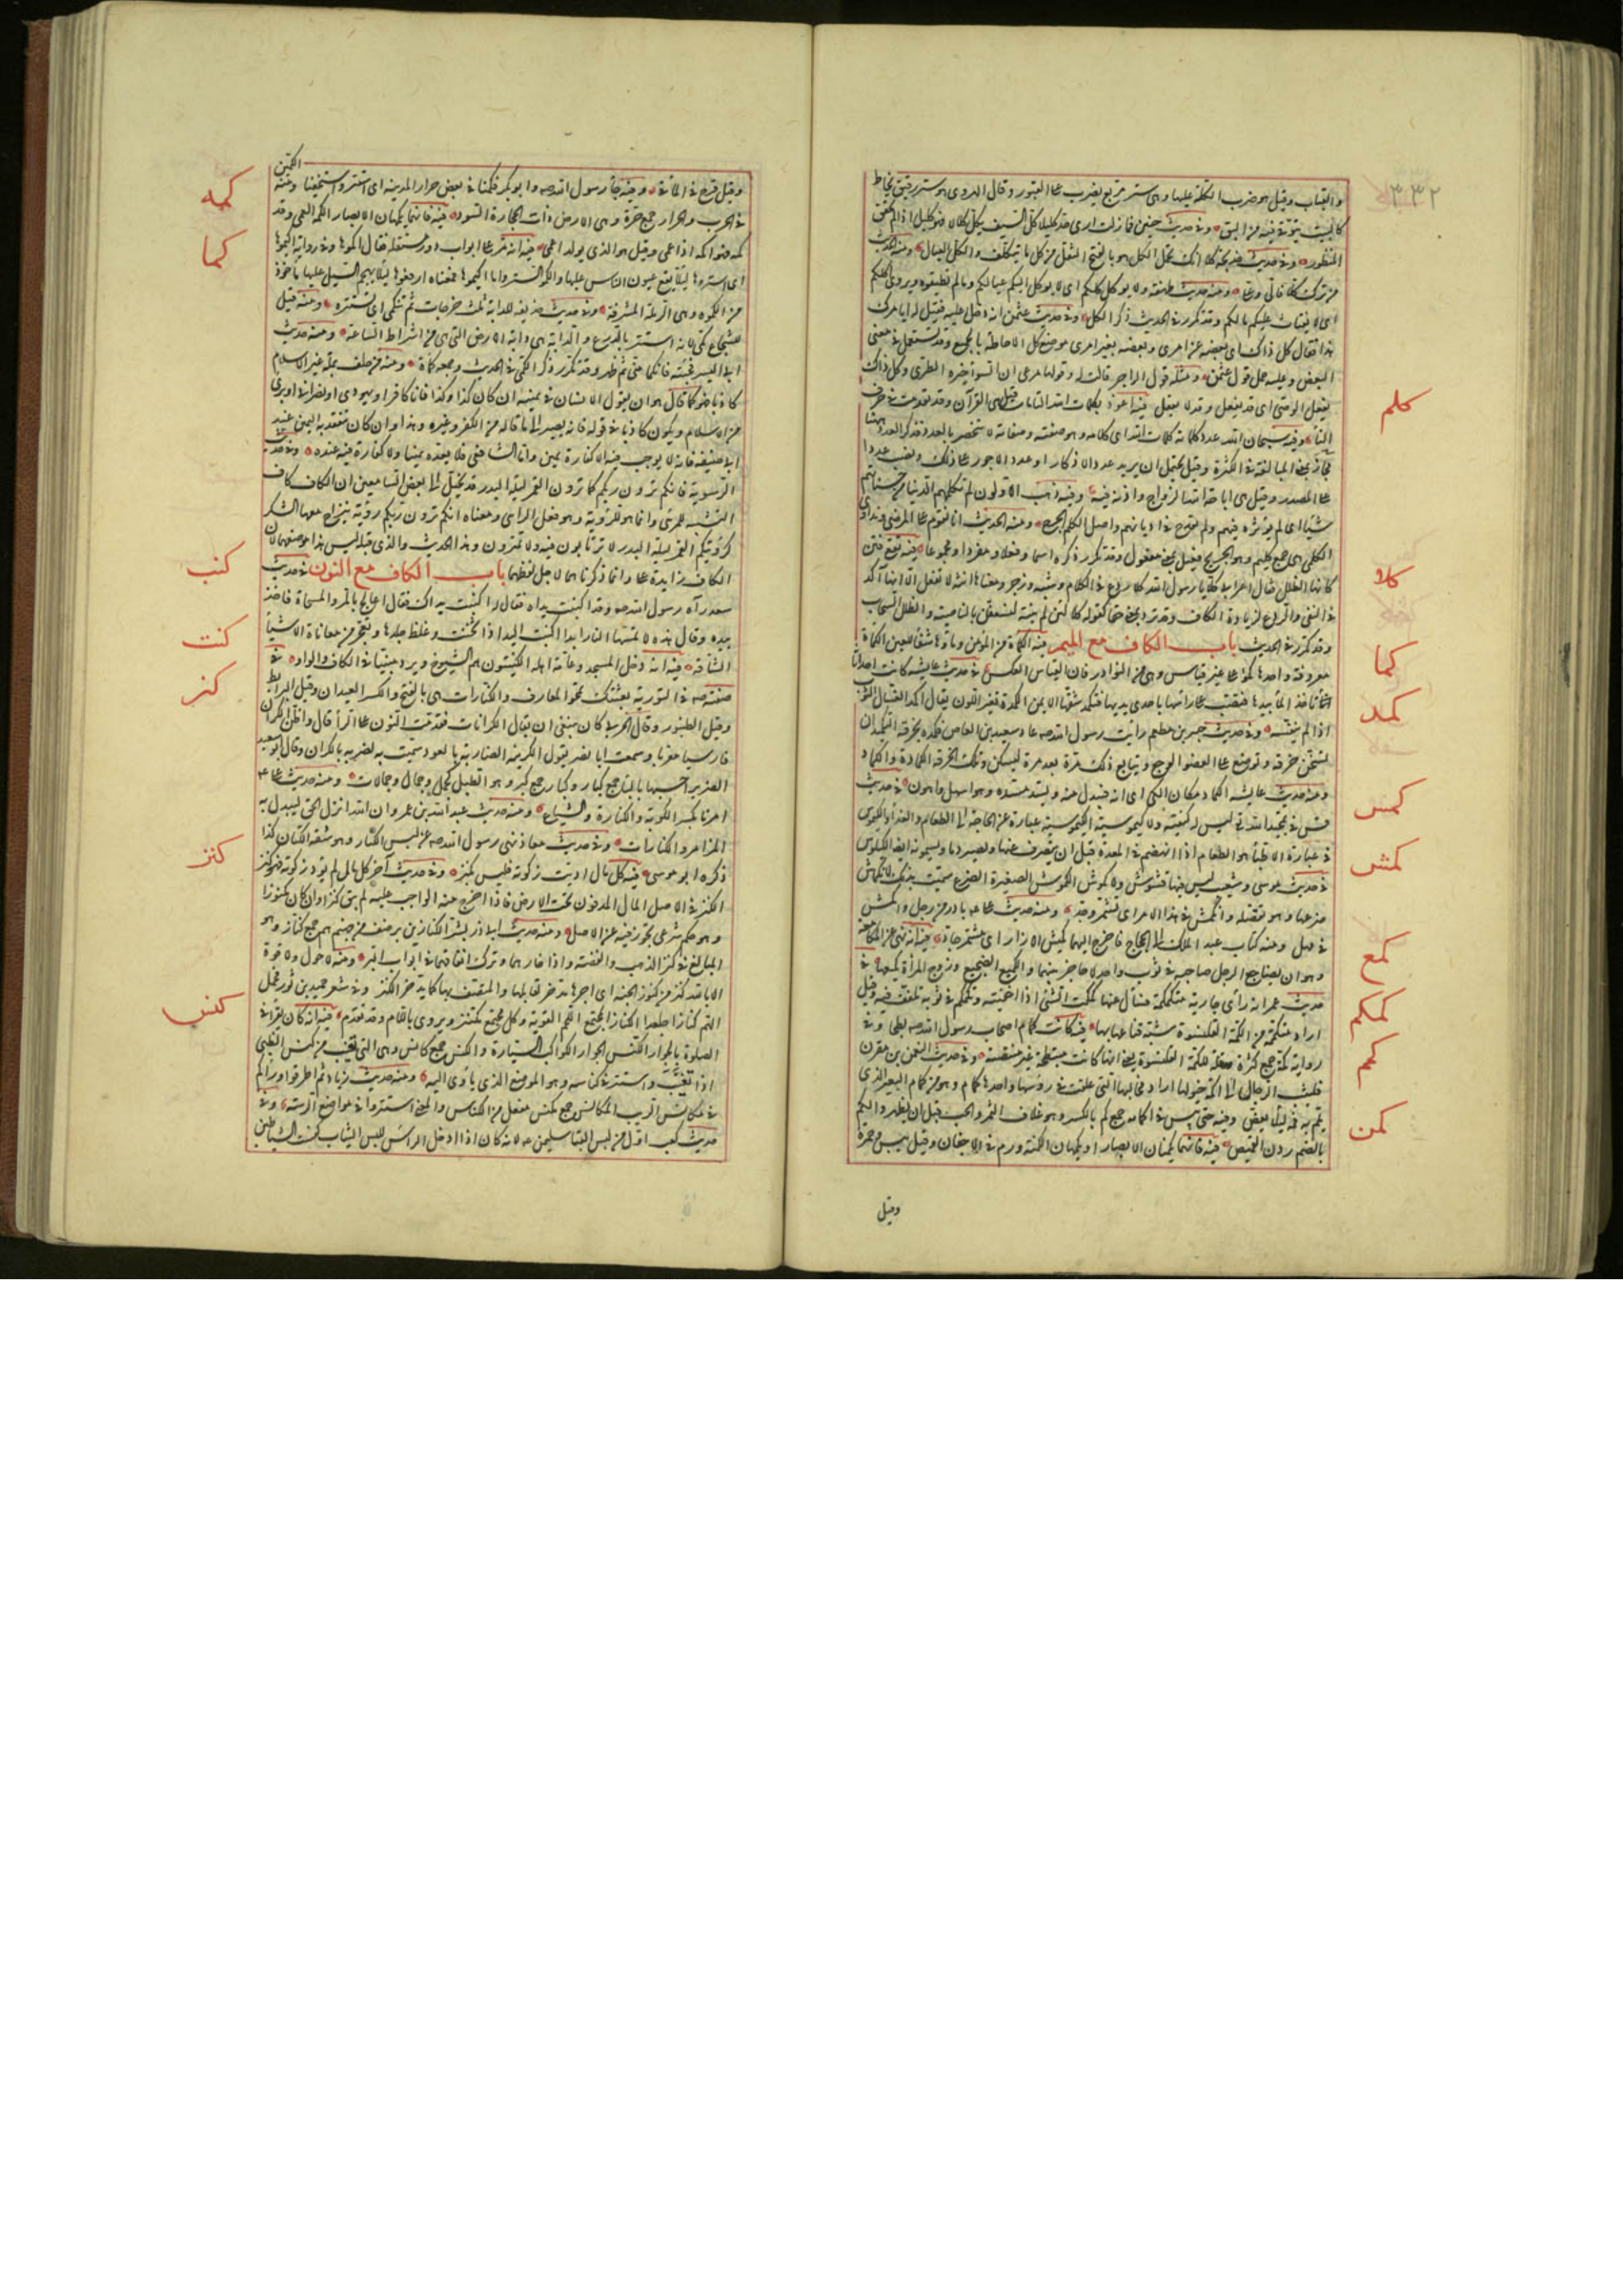 ٣٣٢
والقباب وقيل هو ضرب الكلة عليها وهي ستر مربع يضرب على القبور وقال الهروي هو ستر رقيق يخاط
كالبيت يتوقى فيه من البق وفي حديث حنين فما زلت ارى حدهم كليلا كل السيف يكل كلالا فهو كليل اذا لم يقطع
وفي حديث خديجة كلا انك لتحمل الكل هو بالفتح الثقل من كل ما يتكلف والكل العيال ومنه الحديث
من ترك كلا فالي وعلي ومنه حديث طهفة ولا يوكل كلكم اي لا يوكل اليكم عيالكم وما لم تطيقوه ويروى اكلكم
اي لا يفتات عليكم مالكم وقد تكرر في الحديث ذكر الكل وفي حديث عثمن انه دخل عليه فقيل له ابامرك
هذا فقال كل ذاك اي بعضه عن امري وبعضه بغير امري موضع كل الاحاطة بالجميع وقد تستعمل في معنى
البعض وعليه حمل قول عثمن ومثله قول الراجز قالت له وقولها مرعي ان الشواء خيره الطري وكل ذاك
يفعل الوصي اي قد يفعل وقد لا يفعل فيه اعوذ بكلمات الله التامات قيل هي القرآن وقد تقدمت في حرف
التاء وفيه سبحان الله عدد كلماته كلمات الله اي كلامه وهو صفته وصفاته لا تنحصر بالعدد فذكر العدد ههنا
مجاز بمعنى المبالغة في الكثرة وقيل يحتمل ان يريد عدد الاذكار او عدد الاجور على ذلك ونصب عددا
على المصدر وقيل هي اباحة الله الزواج واذنه فيه وفيه ذهب الاولون لم تكلمهم الدنيا من حسناتهم
شيئا اي لم تؤثر فيهم ولم تقدح في اديانهم واصل الكلم الجرح ومنه الحديث انا نقوم على المرضى ونداوي
الكلمى هي جمع كليم وهو الجريح فعيل بمعنى مفعول وقد تكرر ذكره اسما وفعلا ومفردا ومجموعا فيه تقع فتن
كانها الظلل فقال اعرابي كلا يا رسول الله كلا ردع في الكلام وتنبيه وزجر ومعناها انته لا تفعل الا انها آكد
في النفي والردع لزيادة الكاف وقد ترد بمعنى حقا كقوله كلا لئن لم ينته لنسفعن بالناصية والظلل السحاب
وقد تكرر في الحديث باب الكاف مع الميم فيه الكمأة من المن وماؤها شفاء للعين الكمأة
معروفة واحدها كمؤ على غير قياس وهي من النوادر فان القياس العكس في حديث عايشه كانت احدانا
تاخذ الماء بيدها فتصب على راسها باحدى يديها فتكمد شقها الايمن الكمدة تغير اللون يقال اكمد الغسال الثوب
اذا لم ينقه وفي حديث جبير بن مطعم رأيت رسول الله صم عاد سعيد بن العاص فكمده بخرقة التكميد ان
تسخن خرقة وتوضع على العضو الوجع ويتابع ذلك مرة بعد مرة ليسكن وتلك الخرقة الكمادة والكماد
ومنه حديث عايشه الكماد مكان الكي اي انه يبدل منه ويسد مسده وهو اسهل واهون في حديث
قس في تمجيد الله تع ليس له كيفية ولا كيموسية الكيموسية عبارة عن الحاجة الى الطعام والغذاء والكيموس
في عبارة الاطباء هو الطعام اذا انهضم في المعدة قبل ان ينصرف عنها ويصير دما ويسمونه ايضا الكيلوس
في حديث موسى وشعيب ليس فيها فشوش ولا كموش الكموش الصغيرة الضرع سميت بذلك لانكماش
ضرعها وهو تقلصه وانكمش في هذا الامر اي تشمر وجد ومنه حديث على بادر من وجل واكمش
في مهل ومنه كتاب عبد الملك الى الحجاج فاخرج اليهما كميش الازار اي مشمرا جادا فيه انه نهى عن المكامعة
وهو ان يضاجع الرجل صاحبه في ثوب واحد لا حاجز بينهما والكميع الضجيع وزوج المرأة كميعها في
حديث عمر انه رأى جارية متكمكمة فسأل عنها كمكمت الشيء اذا اخفيته وتكمكم في ثوبه تلفف فيه وقيل
اراد متكممة من الكمة القلنسوة شبه قناعها بها فيه كانت كمام اصحاب رسول الله صم بطحا وفي
رواية اكمة جمع كثرة وقلة للكمة القلنسوة يعني انها كانت منبطحة غير منتصبة وفي حديث النعمن بن مقرن
فليثب الرجال الى اكمة خيولها اراد مخاليها التي علقت في رؤسها واحدها كمام وهو من كمام البعير الذي
يكم به فمه لئلا يعض وفيه حتى ييبس في اكمامه جمع كم بالكسر وهو غلاف الثمر والحب قبل ان يظهر والكم
بالضم ردن القميص فيه فانهما يكمنان الابصار او يكمهان الكمنة ورم في الاجفان وقيل يبس وحمرة
وقيل
كلم
كلا
كما
كمد
كمس
كمش
كمع
كمكم
كمم
كمن
وقيل قرح في المآقي ومنه جاء رسول الله صم وابو بكر فكمنا في بعض حرار المدينة اي استترا واستخفيا ومنه الكمين
في الحرب والحرار جمع حرة وهي الارض ذات الحجارة السود فيه فانهما يكمهان الابصار الكمه العمى وقد
كمه فهو اكمه اذا عمي وقيل هو الذي يولد اعمى فيه انه مر على ابواب دور مستفلة فقال اكموها وفي رواية اكيموها
اي استروها لئلا تقع عيون الناس عليها والكمو الستر واما اكيموها فمعناه ارفعوها لئلا يهجم السيل عليها مأخوذ
من الكومة وهي الرملة المشرفة وفي حديث حذيفة للدابة ثلث خرجات ثم تنكمي اي تستتر ومنه قيل
للشجاع كمي لانه استتر بالدرع والدابة هي دابة الارض التي هي من اشراط الساعة ومنه حديث
ابي اليسر فجئته فانكمى مني ثم ظهر وقد تكرر ذكر الكمي في الحديث وجمعه كماة ومنه من حلف بملة غير الاسلام
كاذبا فهو كما قال هو ان يقول الانسان في يمينه ان كان كذا وكذا فانا كافر او يهودي او نصراني او بريء
من الاسلام ويكون كاذبا في قوله فانه يصير الى ما قاله من الكفر وغيره وهذا وان كان تنعقد به اليمين عند
ابي حنيفة فانه لا يوجب فيه الا كفارة يمين واما الشافعي فلا يعده يمينا ولا كفارة فيه عنده وفي حديث
الرؤية فانكم ترون ربكم كما ترون القمر ليلة البدر قد يخيل الى بعض السامعين ان الكاف كاف
التشبيه للمرئي وانما هو للرؤية وهو فعل الرائي ومعناه انكم ترون ربكم رؤية ينزاح معها الشك
كرؤيتكم القمر ليلة البدر لا ترتابون فيه ولا تمترون وهذا الحديث والذي قبله ليس هذا موضعهما لان
الكاف زايدة على وانما ذكرناهما لاجل لفظهما باب الكاف مع النون في حديث
سعد رآه رسول الله صم وقد اكنبت يداه فقال له اكنبت يداك فقال اعالج بالمر والمسحاة فاخذ
بيده وقال هذه لا تمسها النار ابدا اكنبت اليد اذا ثخنت وغلظ جلدها وتعجر من معاناة الاشياء
الشاقة فيه انه دخل المسجد وعامة اهله الكنتيون هم الشيوخ ويرد مبينا في الكاف والواو في
صفته صم في التورية بعثتك تمحو المعازف والكنارات هي بالفتح والكسر العيدان وقيل البرابط
وقيل الطنبور وقال الحربي كان ينبغي ان يقال الكرانات فقدمت النون على الراء قال واظن الكران
فارسيا معربا وسمعت ابا نصر يقول الكرينة الضاربة بالعود سميت به لضربها بالكران وقال ابو سعيد
الضرير احسبها بالباء جمع كبار وكبار جمع كبر وهو الطبل كجمل وجمال وجمالات ومنه حديث على
امرنا بكسر الكوبة والكنارة والشياع ومنه حديث عبد الله بن عمرو ان الله انزل الحق ليبدل به
المزامر والكنارات وفي حديث معاذ نهى رسول الله صم عن لبس الكنار وهو شقة الكتان كذا
ذكره ابو موسى فيه كل مال اديت زكوته فليس بكنز وفي حديث آخر كل مال لم يؤد زكوته فهو كنز
الكنز في الاصل المال المدفون تحت الارض فاذا اخرج منه الواجب عليه لم يبق كنزا وان كان مكنوزا
وهو حكم شرعي تجوز فيه عن الاصل ومنه حديث ابي ذر بشر الكنازين برضف من جهنم هم جمع كناز وهو
المبالغ في كنز الذهب والفضة وادخارهما وترك انفاقهما في ابواب البر ومنه لا حول ولا قوة
الا بالله كنز من كنوز الجنة اي اجرها مدخر لقائلها والمتصف بها كما يدخر الكنز وفي شعر حميد بن ثور فحمل
الهم كنازا جلعدا الكناز المجتمع اللحم القوية وكل مجتمع مكتنز ويروى باللام وقد تقدم فيه انه كان يقرأ في
الصلوة بالجوار الكنس الجوار الكواكب السيارة والكنس جمع كانس وهي التي تغيب من كنس الظبي
اذا تغيب واستتر في كناسه وهو الموضع الذي يأوي اليه ومنه حديث زياد ثم اطرقوا وراءكم
في مكانس الريب المكانس جمع مكنس مفعل من الكناس والمعنى استتروا في مواضع الريبة وفي
حديث كعب اول من لبس القباء سليمن عم لانه كان اذا ادخل الراس للبس الثياب كنست الشياطين
كمه
كما
كنب
كنت
كنر
كنز
كنس